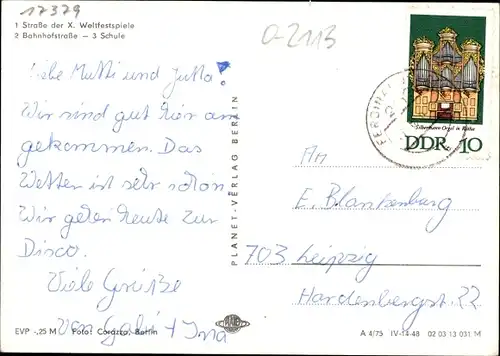 17379
1 Straße der X. Weltfestspiele
2 Bahnhofstraße — 3 Schule
0-2113
Liebe Mutti und Jutta!
Wir sind gut hier an
gekommen. Das
Wetter ist sehr schön
Wir gehen heute zur
Disco.
Viele Grüße
von Gabi + Ina
PLANET-VERLAG BERLIN
FERDINA
Silbermann-Orgel in Rötha
DDR 10
An
E. Blankenburg
703 Leipzig
Hardenbergst. 22
EVP -,25 M Foto: Corazza, Berlin
A 4/75 IV-14-48 02 03 13 031 M